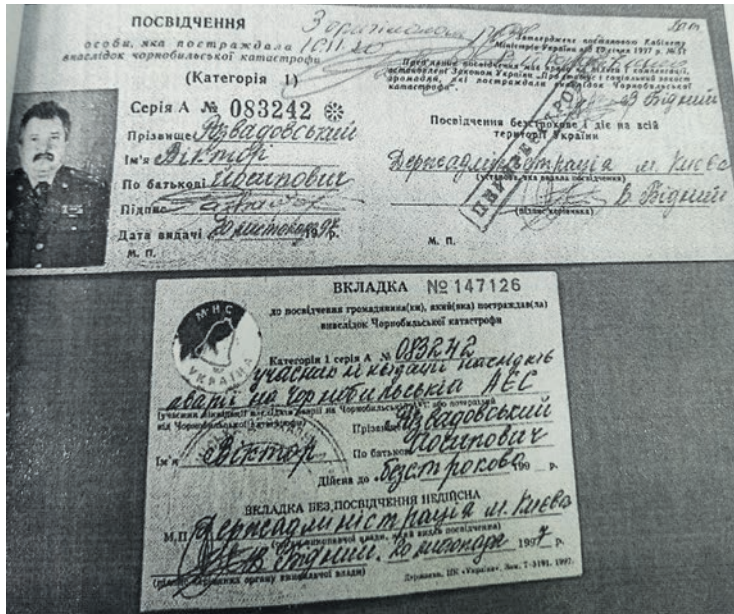 ПОСВІДЧЕННЯ
особи, яка постраждала
внаслідок чорнобильської катастрофи
(Категорія 1)
Серія А № 083242
Прізвище Язвадовський
Ім'я Віктор
По батькові Йосипович
Підпис
Дата видачі 20 листопада 97 р.
М. П.
Затверджене постановою Кабінету
Міністрів України від 20 січня 1997 р. № 51
Пред'явник посвідчення має право на пільги і компенсації,
встановлені Законом України «Про статус і соціальний захист
громадян, які постраждали внаслідок Чорнобильської
катастрофи».
В Бідний
Посвідчення безстрокове і діє на всій
території України
Держадміністрація м. Києва
(установа, яка видала посвідчення)
В. Бідний
(підпис керівника)
М. П.
ВКЛАДКА № 147126
до посвідчення громадянина(ки), який(яка) постраждав(ла)
внаслідок Чорнобильської катастрофи
МНС
УКРАЇНА
Категорія 1 серія А № 083242
учасник ліквідації наслідків
аварії на Чорнобильській АЕС
(учасник ліквідації наслідків аварії на Чорнобильській АЕС або потерпілий
від Чорнобильської катастрофи)
Прізвище Язвадовський
Ім'я Віктор По батькові Йосипович
Дійсна до безстроково 199 р.
ВКЛАДКА БЕЗ ПОСВІДЧЕННЯ НЕДІЙСНА
М.П. Держадміністрація м. Києва
(орган виконавчої влади, який видав посвідчення)
В. Бідний. 20 листопада 1997 р.
(підпис керівника органу виконавчої влади)
Держзнак, ПК «Україна». Зам. 7-3191. 1997.